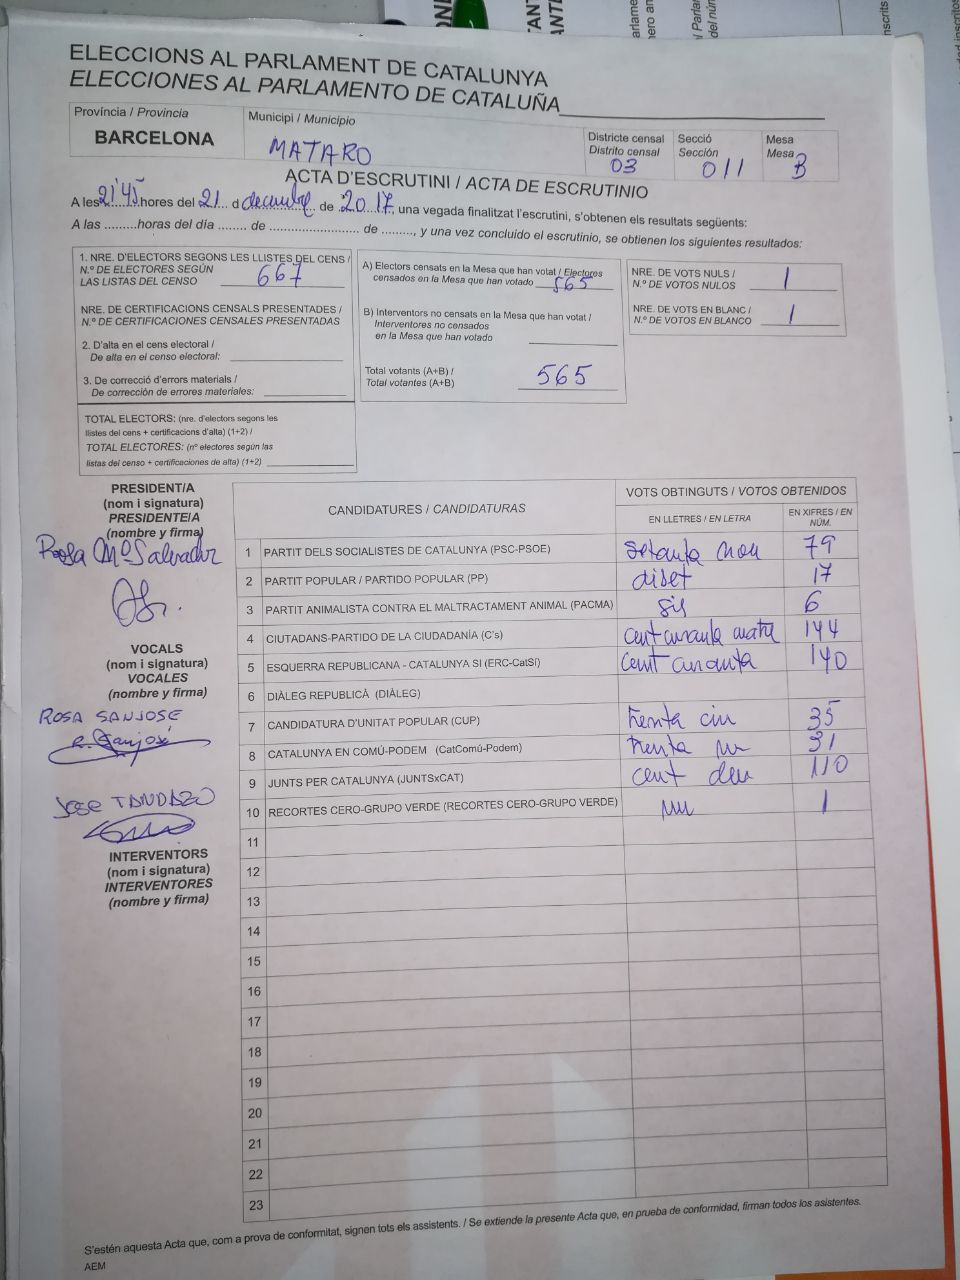 ELECCIONS AL PARLAMENT DE CATALUNYA
ELECCIONES AL PARLAMENTO DE CATALUÑA
Província / Provincia
BARCELONA
Municipi / Municipio
MATARO
Districte censal
Distrito censal
03
Secció
Sección
011
Mesa
Mesa
B
ACTA D'ESCRUTINI / ACTA DE ESCRUTINIO
A les 21'45 hores del 21 d decembre de 2017, una vegada finalitzat l'escrutini, s'obtenen els resultats següents:
A las .........horas del día ........ de ......................... de ........., y una vez concluido el escrutinio, se obtienen los siguientes resultados:
1. NRE. D'ELECTORS SEGONS LES LLISTES DEL CENS /
N.º DE ELECTORES SEGÚN
LAS LISTAS DEL CENSO 667
NRE. DE CERTIFICACIONS CENSALS PRESENTADES /
N.º DE CERTIFICACIONES CENSALES PRESENTADAS
2. D'alta en el cens electoral /
De alta en el censo electoral:
3. De correcció d'errors materials /
De corrección de errores materiales:
TOTAL ELECTORS: (nre. d'electors segons les
llistes del cens + certificacions d'alta) (1+2) /
TOTAL ELECTORES: (nº electores según las
listas del censo + certificaciones de alta) (1+2)
A) Electors censats en la Mesa que han votat / Electores
censados en la Mesa que han votado 565
B) Interventors no censats en la Mesa que han votat /
Interventores no censados
en la Mesa que han votado
Total votants (A+B) /
Total votantes (A+B) 565
NRE. DE VOTS NULS /
N.º DE VOTOS NULOS 1
NRE. DE VOTS EN BLANC /
N.º DE VOTOS EN BLANCO 1
PRESIDENT/A
(nom i signatura)
PRESIDENTE/A
(nombre y firma)
Rosa Mª Salvador
VOCALS
(nom i signatura)
VOCALES
(nombre y firma)
ROSA SANJOSE
R. Sanjosé
JOSE TANDAZO
INTERVENTORS
(nom i signatura)
INTERVENTORES
(nombre y firma)
CANDIDATURES / CANDIDATURAS
VOTS OBTINGUTS / VOTOS OBTENIDOS
EN LLETRES / EN LETRA
EN XIFRES / EN NÚM.
1 PARTIT DELS SOCIALISTES DE CATALUNYA (PSC-PSOE) setanta nou 79
2 PARTIT POPULAR / PARTIDO POPULAR (PP) diset 17
3 PARTIT ANIMALISTA CONTRA EL MALTRACTAMENT ANIMAL (PACMA) sis 6
4 CIUTADANS-PARTIDO DE LA CIUDADANÍA (C's) cent curanta cuatre 144
5 ESQUERRA REPUBLICANA - CATALUNYA SI (ERC-CatSí) cent curanta 140
6 DIÀLEG REPUBLICÀ (DIÀLEG)
7 CANDIDATURA D'UNITAT POPULAR (CUP) trenta cinc 35
8 CATALUNYA EN COMÚ-PODEM (CatComú-Podem) trenta un 31
9 JUNTS PER CATALUNYA (JUNTSxCAT) cent deu 110
10 RECORTES CERO-GRUPO VERDE (RECORTES CERO-GRUPO VERDE) un 1
11
12
13
14
15
16
17
18
19
20
21
22
23
S'estén aquesta Acta que, com a prova de conformitat, signen tots els assistents. / Se extiende la presente Acta que, en prueba de conformidad, firman todos los asistentes.
AEM